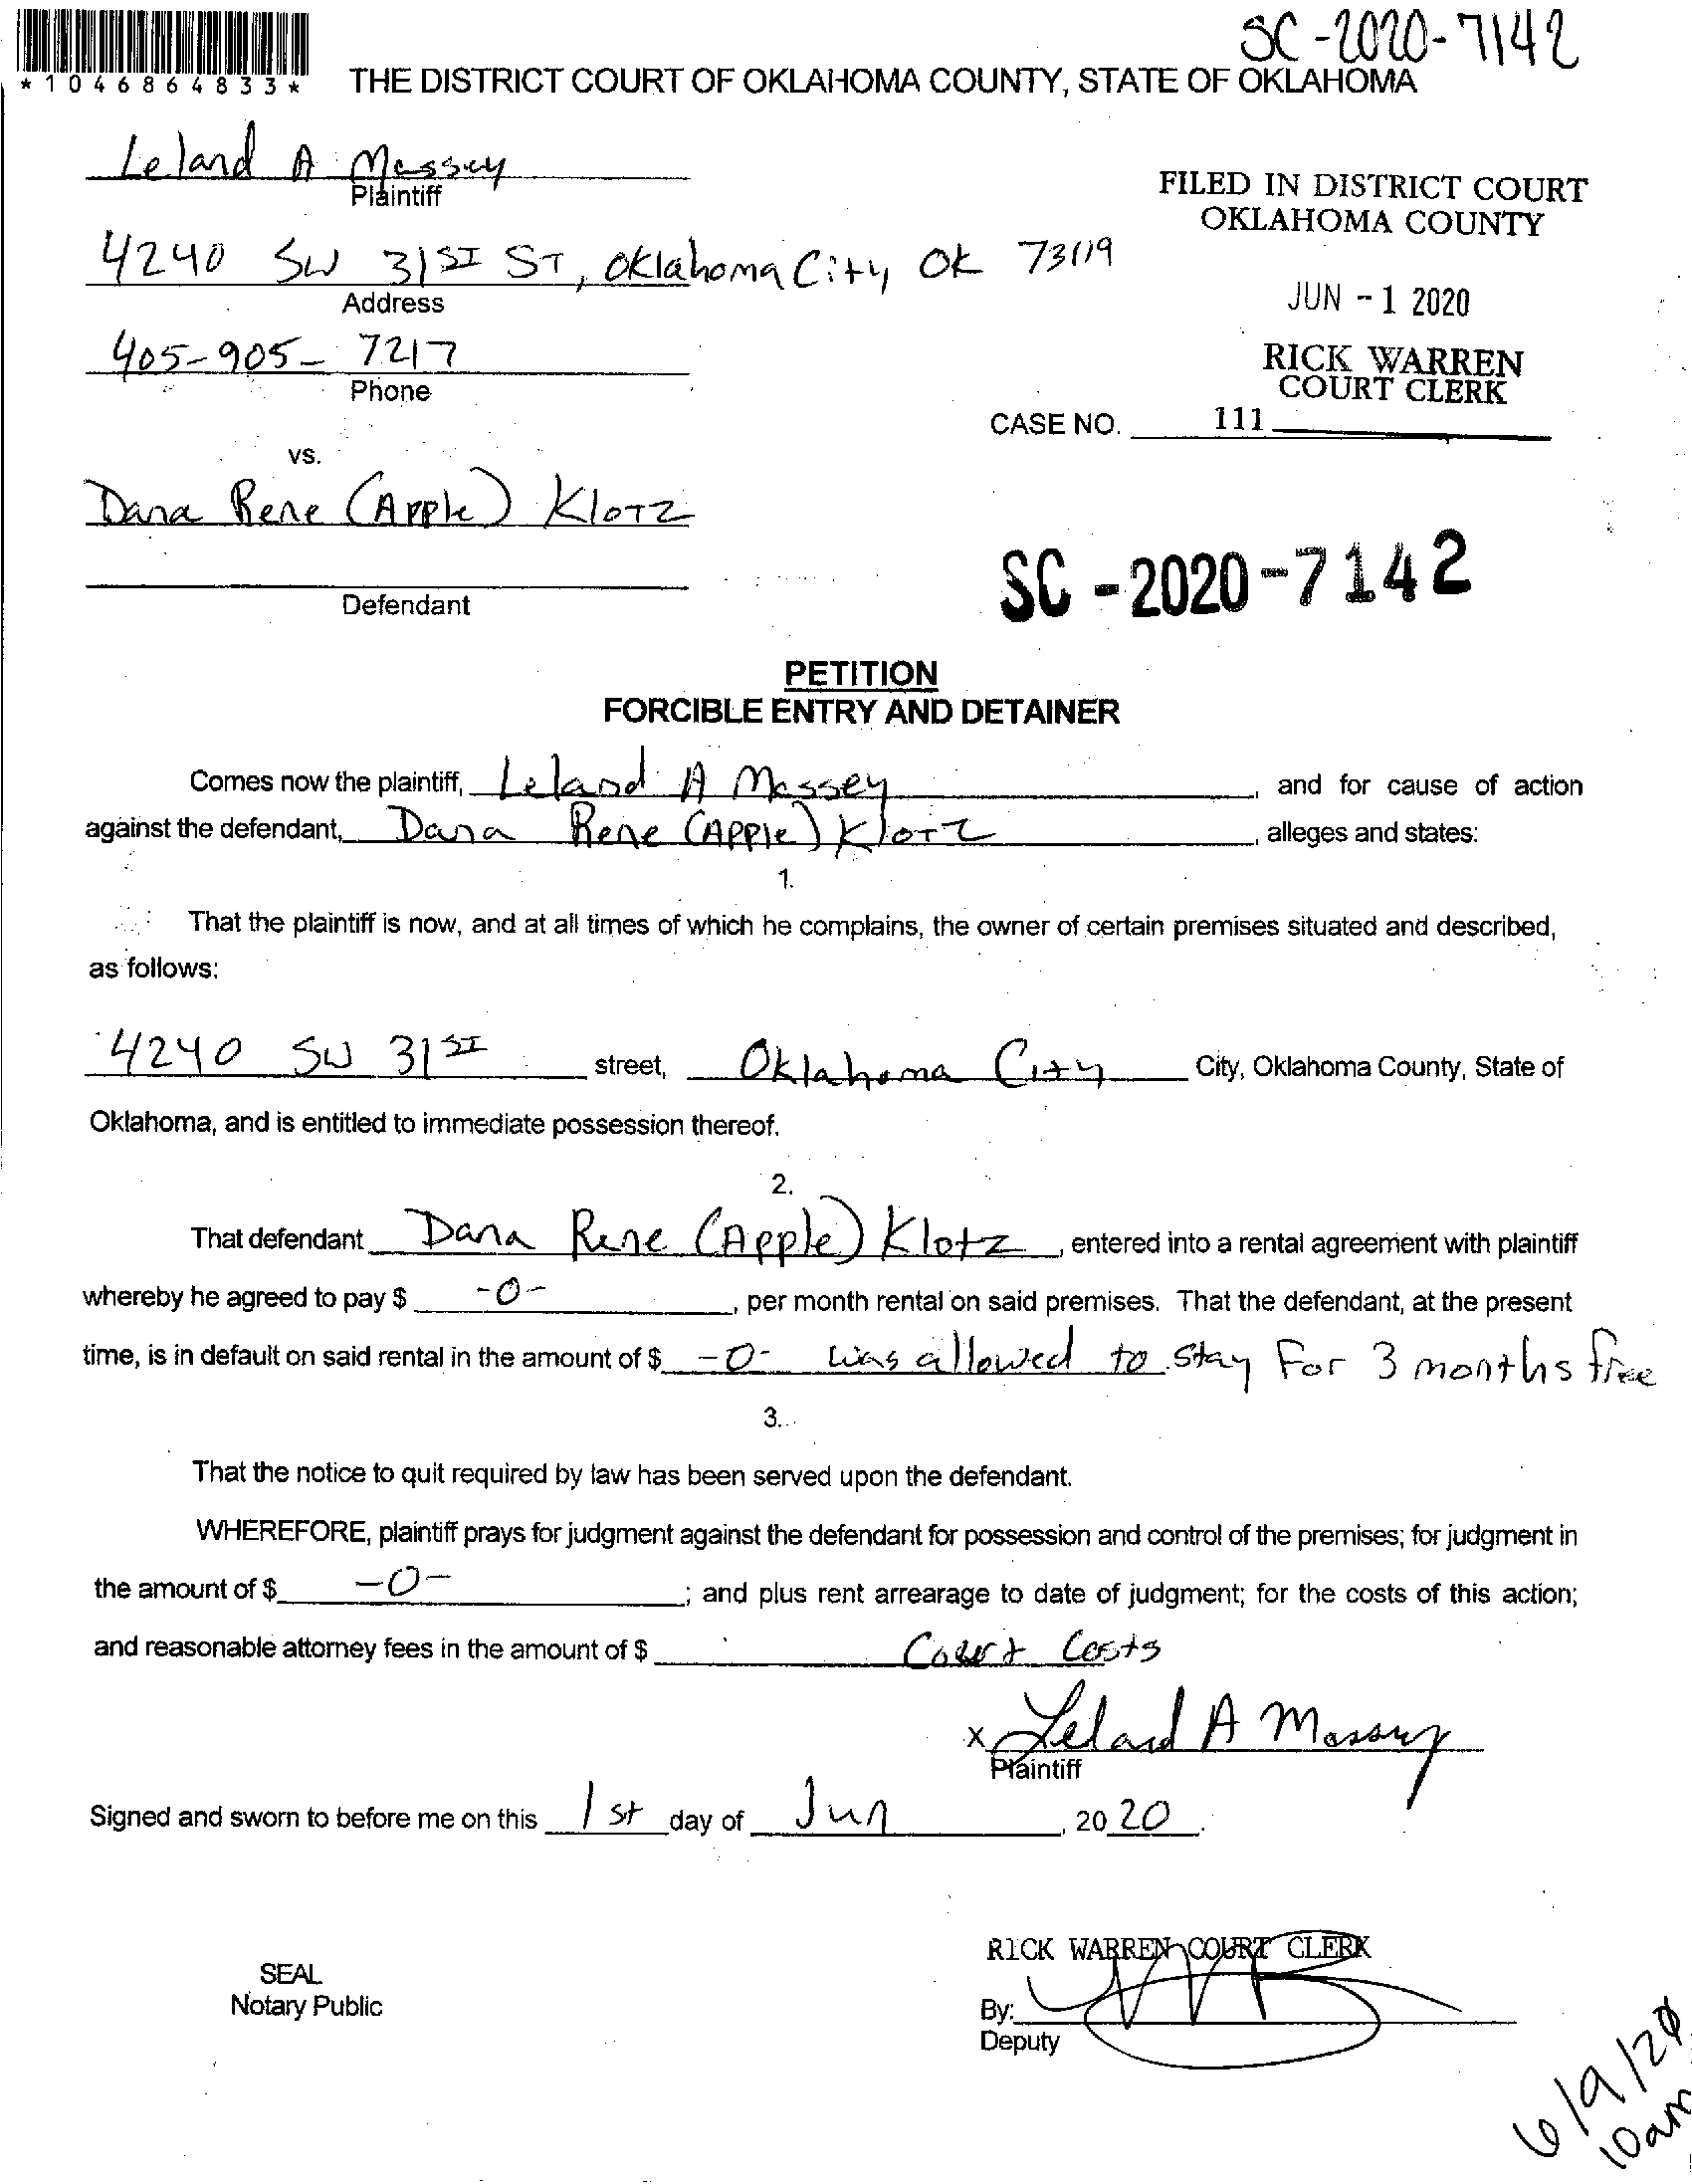 SC-2020-7142
*1046864833*
THE DISTRICT COURT OF OKLAHOMA COUNTY, STATE OF OKLAHOMA
Leland A Massey
Plaintiff
FILED IN DISTRICT COURT
OKLAHOMA COUNTY
4240 SW 31ST ST, Oklahoma City OK 73119
Address
JUN - 1 2020
405-905-7217
Phone
RICK WARREN
COURT CLERK
CASE NO. 111
vs.
Dana Rene (Apple) Klotz
Defendant
SC - 2020 - 7142
PETITION
FORCIBLE ENTRY AND DETAINER
Comes now the plaintiff, Leland A Massey, and for cause of action
against the defendant, Dana Rene (Apple) Klotz, alleges and states:
1.
That the plaintiff is now, and at all times of which he complains, the owner of certain premises situated and described,
as follows:
4240 SW 31ST street, Oklahoma City City, Oklahoma County, State of
Oklahoma, and is entitled to immediate possession thereof.
2.
That defendant Dana Rene (Apple) Klotz, entered into a rental agreement with plaintiff
whereby he agreed to pay $ -0-, per month rental on said premises. That the defendant, at the present
time, is in default on said rental in the amount of $ -0- was allowed to stay For 3 months free
3.
That the notice to quit required by law has been served upon the defendant.
WHEREFORE, plaintiff prays for judgment against the defendant for possession and control of the premises; for judgment in
the amount of $ -0-; and plus rent arrearage to date of judgment; for the costs of this action;
and reasonable attorney fees in the amount of $ Court Costs
x Leland A Massey
Plaintiff
Signed and sworn to before me on this 1st day of Jun, 20 20.
RICK WARREN COURT CLERK
SEAL
Notary Public
By:
Deputy
6/9/20
10am